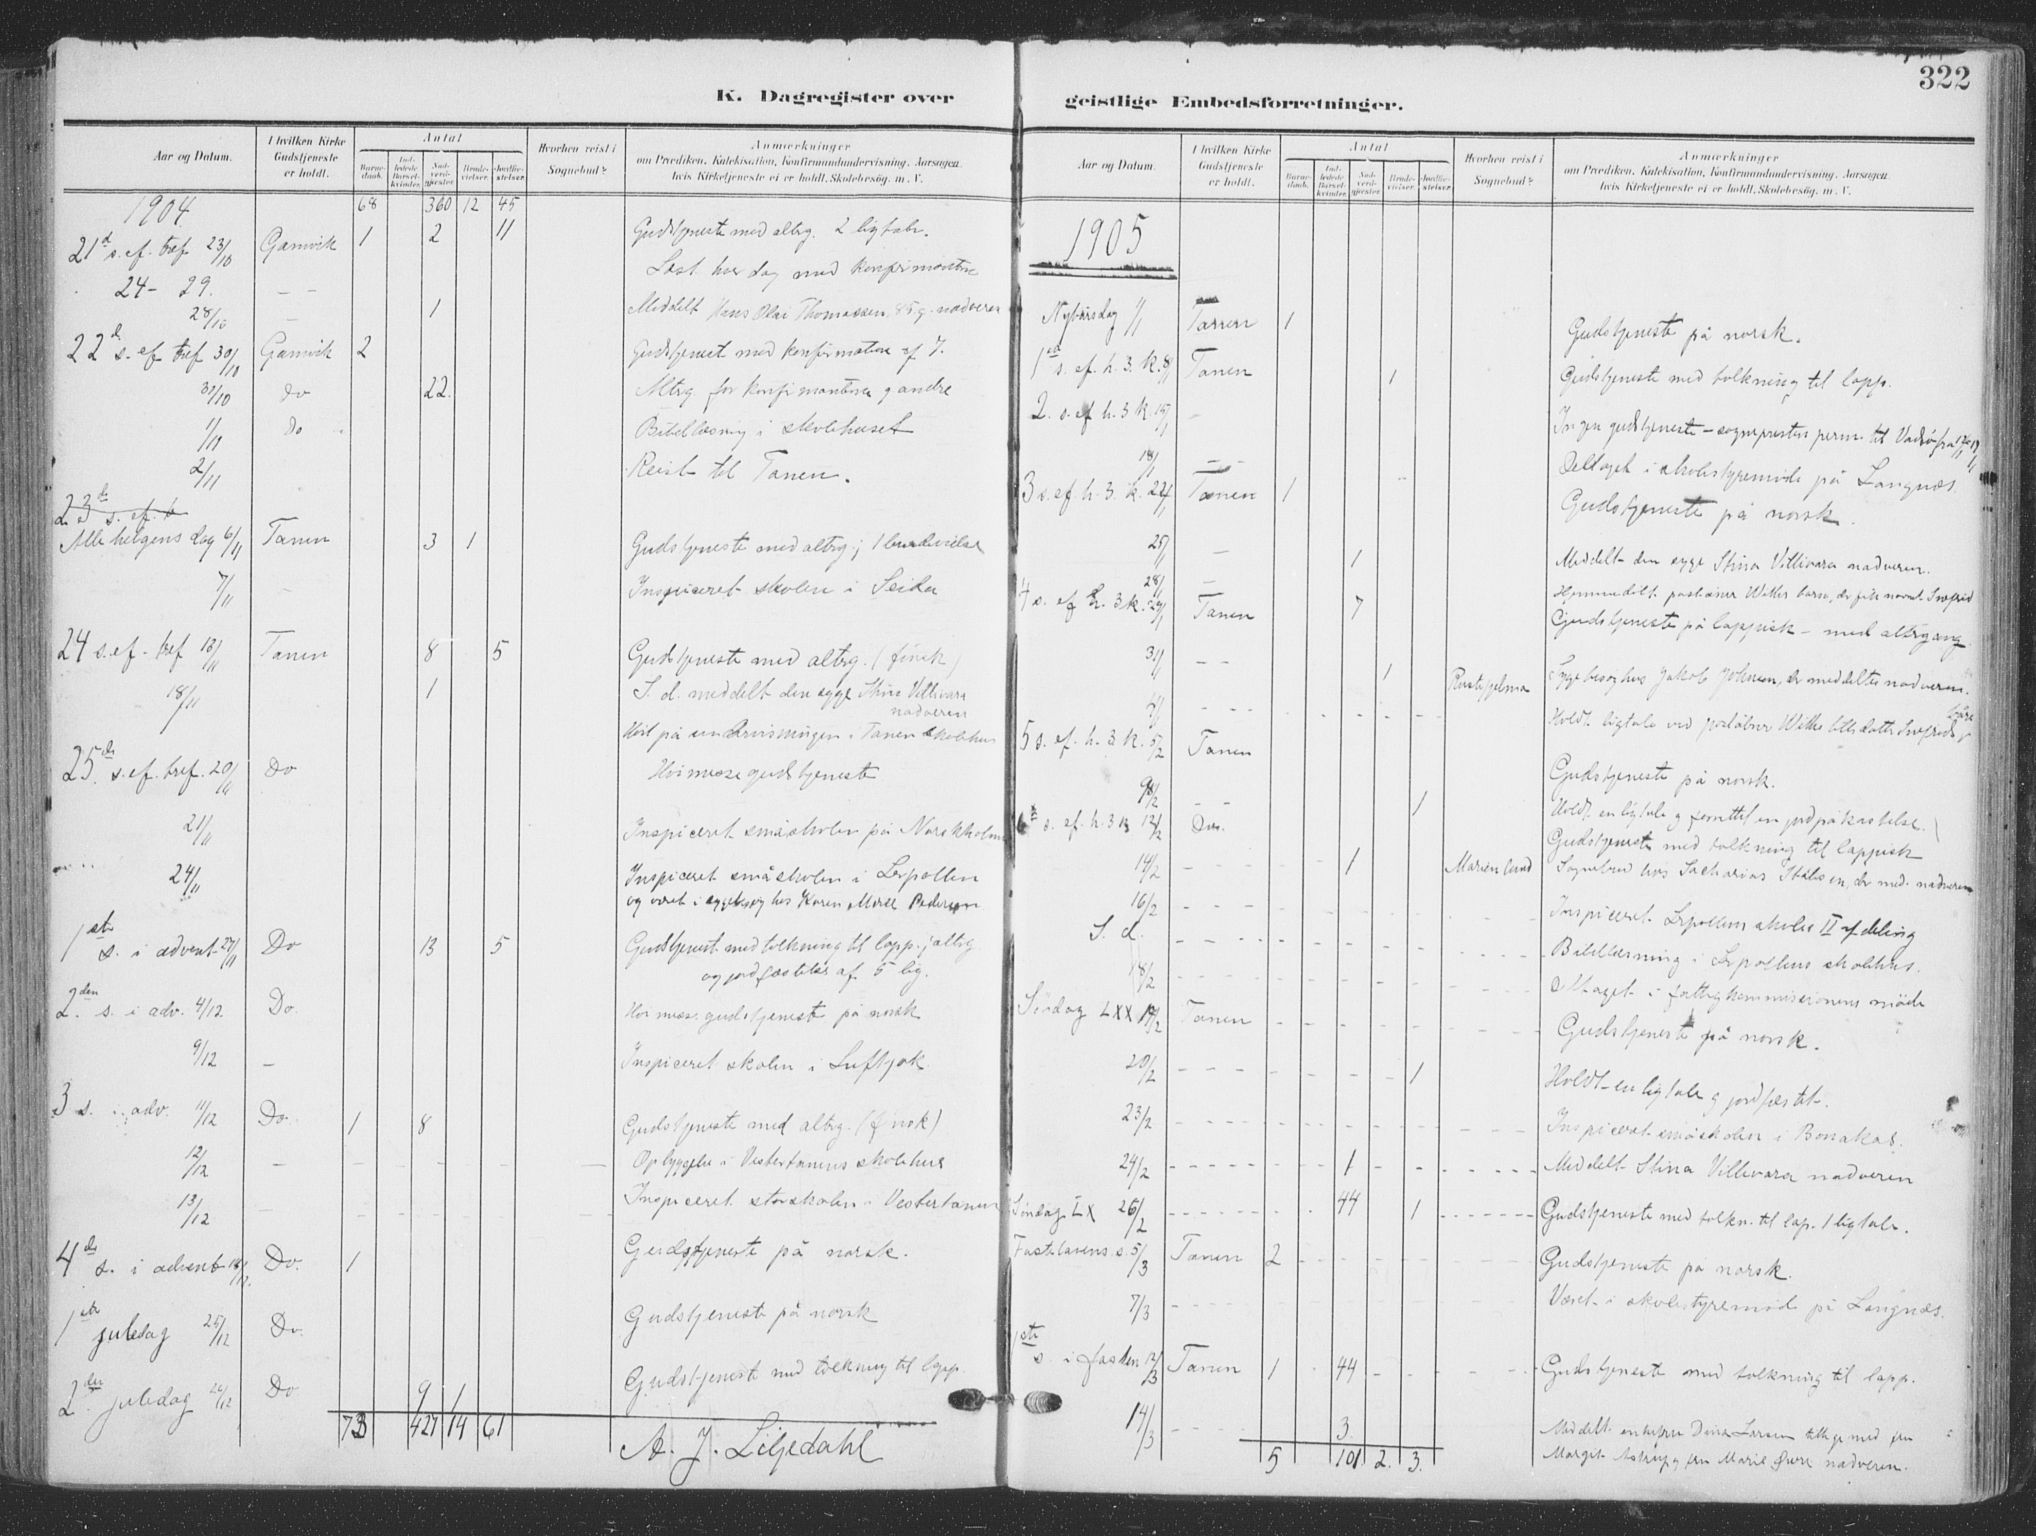 322
K. Dagregister over
Aar og Datum.
I hvilken Kirke Gudstjeneste er holdt.
Antal
Barne-daab.
Ind-ledede Barsel-kvinder.
Nad-verd-gjester.
Brude-vielser.
Jordfæ-stelser.
Hvorhen reist i Sognebud?
Anmærkninger
om Prædiken, Katekisation, Konfirmandundervisning, Aarsagen,
hvis Kirketjeneste ei er holdt, Skolebesøg m. V.
1904 68 360 12 45
21d s. ef. tref. 23/10 Gamvik 1 2 11 Gudstjeneste med altrg. 2 ligtaler.
24 - 29. — — Læst hver dag med konfirmanterne
28/10 — 1 Meddelt Hans Olai Thomassen 85 g. nadveren
22d s. ef. tref 30/10 Gamvik 2 Gudstjenest med konfirmation af 7.
31/10 Do 22. Altrg for konfirmanterne g andre
1/11 Do Bibellæsning i skolehuset
2/11 Reist til Tanen.
23de s. ef. t
Alle helgens dag 6/11 Tanen 3 1 Gudstjeneste med altrg; 1 brudevielse
7/11 — Inspiceret skolen i Seida
24 s. ef. tref 13/11 Tanen 8 5 Gudstjeneste med altrg. (finsk)
18/11 1 S. d. meddelt den syge Stina Villivara
nadveren
Hørt på undervisningen i Tanen skolehus
25de s. ef. tref. 20/11 Do Høimesse gudstjeneste
21/11 Inspiceret småskolen på Norskholmen
24/11 Inspiceret småskolen i Lerpollen
og været i sygebesøg hos Karen Marie Pedersen
1ste s. i advent 27/11 Do 13 5 Gudstjenest med tolkning til lapp.; altrg
og jordfæstelse af 5 lig.
2den s. i adv. 4/12 Do. Høimesse gudstjeneste på norsk
9/12 — Inspiceret skolen i Luftjok
3 s. i adv. 11/12 Do. 1 8 Gudstjeneste med altrg. (finsk)
12/12 — Opbyggelse i Vestertanens skolehus
13/12 — Inspiceret storskolen i Vestertanen
4de s. i advent 18/12 Do. 1 Gudstjeneste på norsk.
1ste juledag 25/12 Do. Gudstjeneste på norsk
2den juledag 26/12 Do 9 1 Gudstjeneste med tolkning til lapp.
73 427 14 61 A. J. Liljedahl
geistlige Embedsforretninger.
Aar og Datum.
I hvilken Kirke Gudstjeneste er holdt.
Antal
Barne-daab.
Ind-ledede Barsel-kvinder.
Nad-verd-gjester.
Brude-vielser.
Jordfæ-stelser.
Hvorhen reist i Sognebud?
Anmærkninger
om Prædiken, Katekisation, Konfirmandundervisning, Aarsagen,
hvis Kirketjeneste ei er holdt, Skolebesøg m. V.
1905
Nytårsdag 1/1 Tanen 1 Gudstjeneste på norsk.
1ste s. ef. h. 3. k. 8/1 Tanen 1 Gudstjeneste med tolkning til lapp.
2. s. ef h. 3 k. 15/1 — Ingen gudstjeneste - sognepresten perm. til Vadsø
18/1 — — Deltaget i skolestyremøde på Langnæs.
3 s. ef. h. 3. k. 22/1 Tanen 1 Gudstjeneste på norsk.
25/1 — 1 Meddelt den syge Stina Villivara nadveren.
28/1 — Hjemmedøbt
4 s. ef h. 3 k. 29/1 Tanen 7 Gudstjeneste på lappisk - med altrgang
31/1 — — 1 Rustefjelma Sygebesøg hos Jakob Johnsen, der meddeltes nadveren.
Holdt ligtale ved
5 s. ef. h. 3. k. 5/2 Tanen Gudstjeneste på norsk.
1 Holdt en ligtale g forrettet en jordpåkastelse.
6te s. ef. h. 3 k 12/2 Do. Gudstjeneste med tolkning til lappisk
14/2 — 1 Marienlund Sognebud hos Sacharias der med. nadveren
16/2 Inspiceret Lerpollens skoles II afdeling
S. d. Bibellæsning i Lerpollens skolehus.
18/2 Deltaget i fattigkommissionens møde
Søndag LXX 19/2 Tanen Gudstjeneste på norsk.
20/2 1 Holdt en ligtale g jordfæstet.
23/2 Inspiceret småskolen i Bonakas.
24/2 1 Meddelt Stina Villivara nadveren
Søndag LX 26/2 44 1 Gudstjeneste med tolkn. til lap. 1 ligtale.
Fastelavens s. 5/3 Tanen 2 Gudstjeneste på norsk.
7/3 Været i skolestyremøde på Langnæs.
1ste s. i fasten 12/3 Tanen 1 44 Gudstjeneste med tolkning til lapp.
14/3 3. Meddelt enkefru Dina Larsen tillige med fru
Margit Astrup g fru Marie Øwre nadveren.
5 101 2. 3.